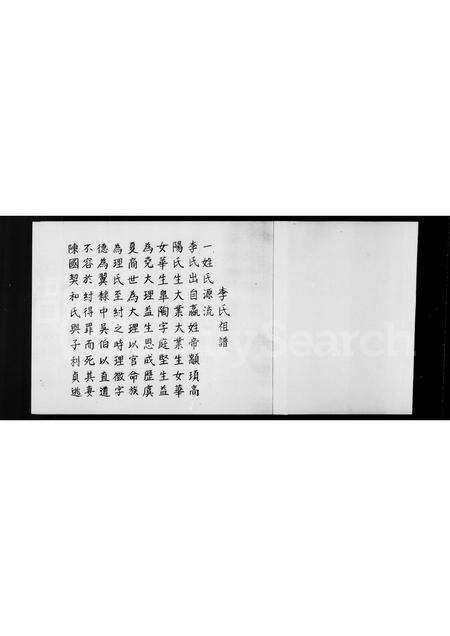 李氏祖譜
一姓氏源流
李氏出自嬴姓帝顓頊高
陽氏生大業大業生女華
女華生臯陶字庭堅生益
為堯大理益生恩成歷虞
夏商世為大理以官命族
為理氏至紂之時理徵字
德為翼隸中吳伯以直道
不容於紂得罪而死其妻
陳國契和氏與子利貞逃
Search